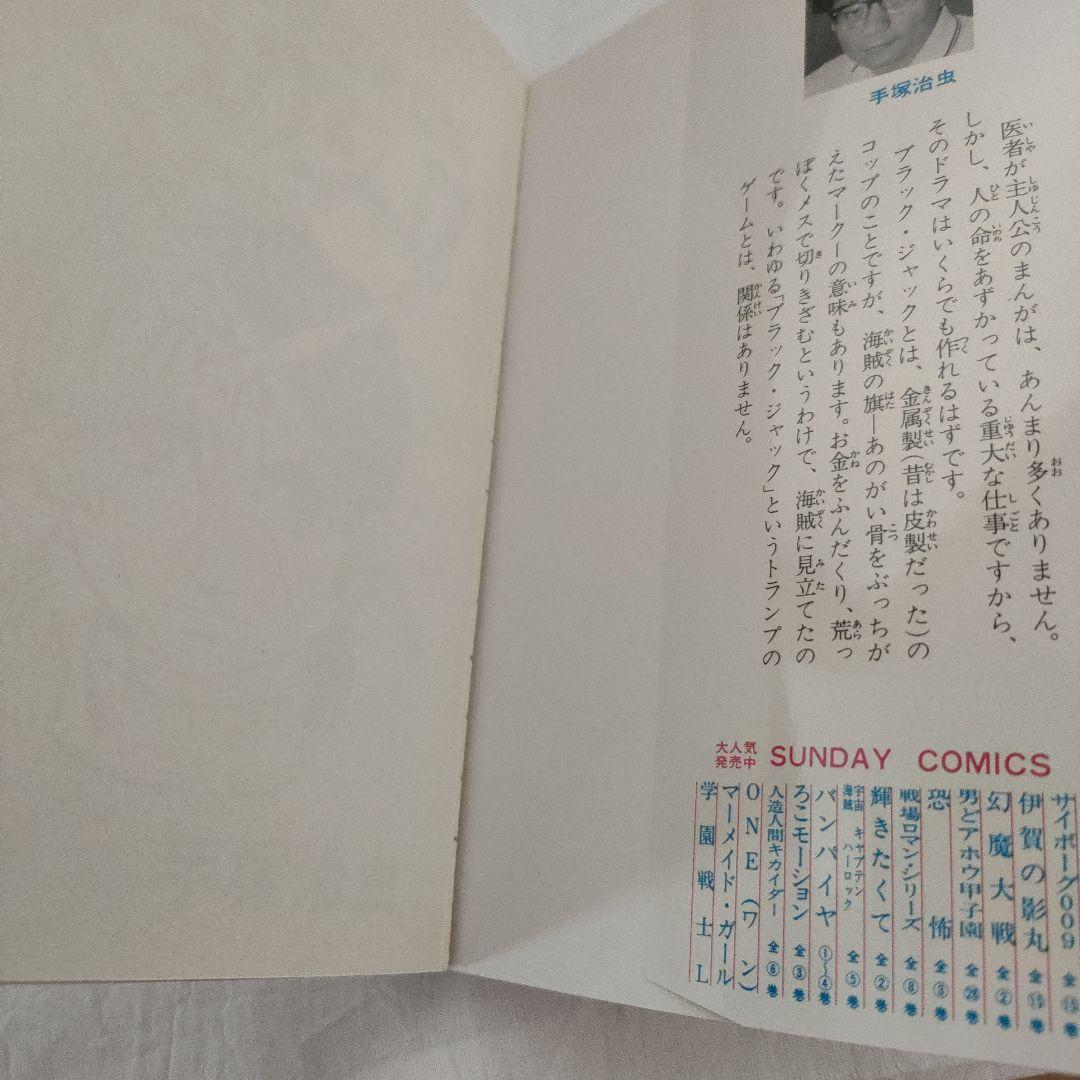 手塚治虫
医者が主人公のまんがは、あんまり多くありません。
しかし、人の命をあずかっている重大な仕事ですから、
そのドラマはいくらでも作れるはずです。
ブラック・ジャックとは、金属製(昔は皮製だった)の
コップのことですが、海賊の旗—あのがい骨をぶっちが
えたマークーの意味もあります。お金をふんだくり、荒っ
ぽくメスで切りきざむというわけで、海賊に見立てたの
です。いわゆる「ブラック・ジャック」というトランプの
ゲームとは、関係はありません。
大人気
発売中 SUNDAY COMICS
サイボーグ009 全⑮巻
伊賀の影丸 全⑮巻
幻魔大戦 全②巻
男どアホウ甲子園 全㉘巻
恐怖 全③巻
戦場ロマン・シリーズ 全⑧巻
輝きたくて 全②巻
宇宙海賊 キャプテンハーロック 全⑤巻
バンパイヤ ①〜④巻
ろこモーション 全③巻
人造人間キカイダー 全⑥巻
ONE(ワン)
マーメイド・ガール
学園戦士L